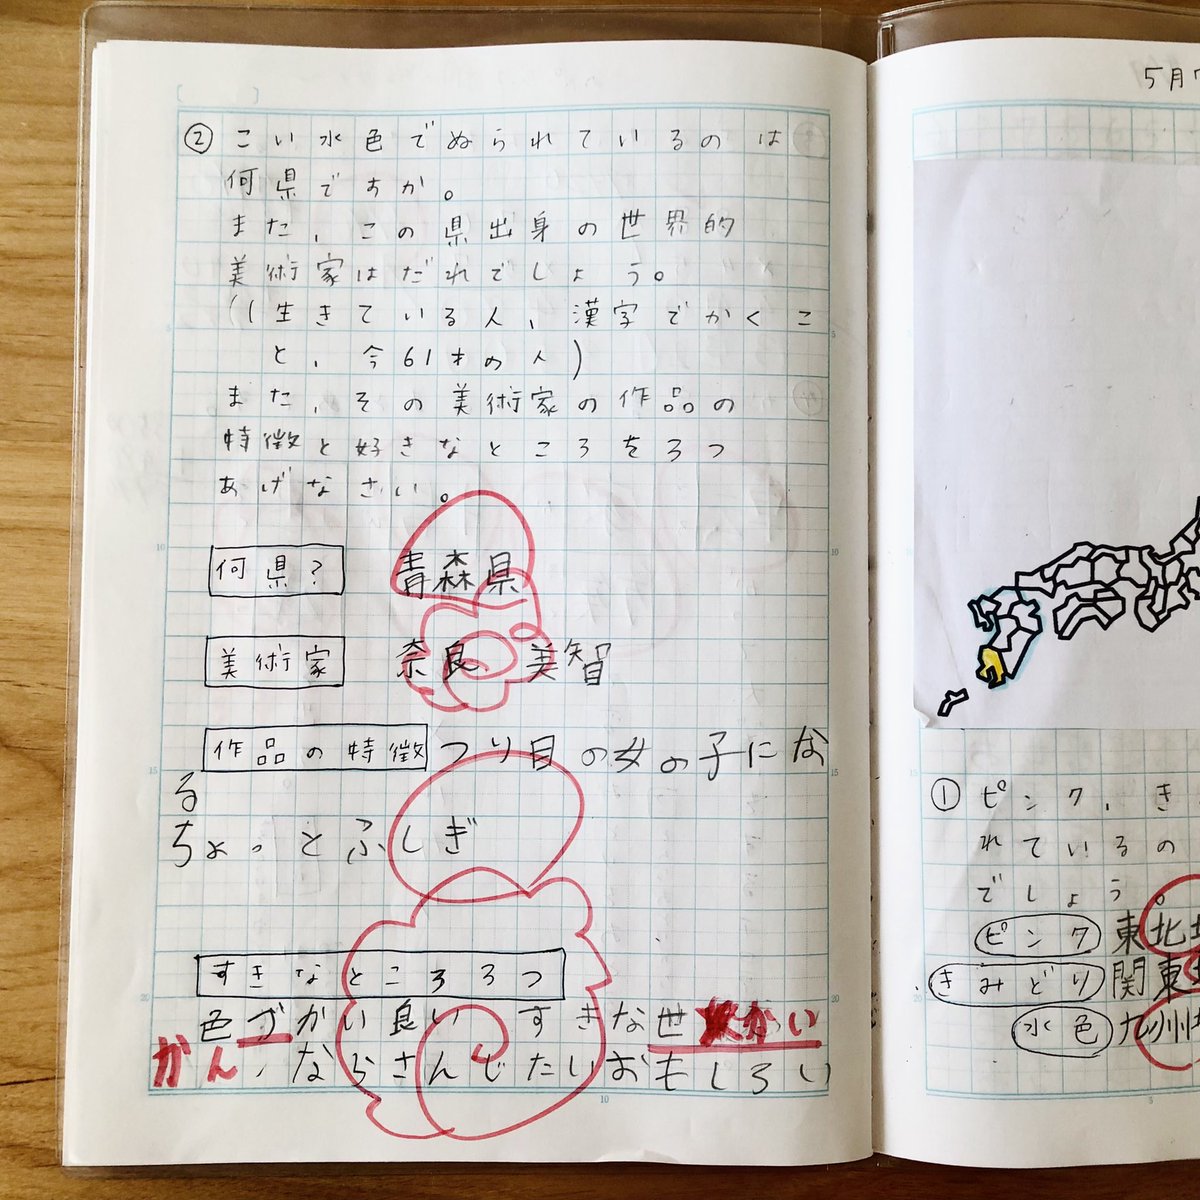 ② こい水色でぬられているのは
何県ですか。
また、この県出身の世界的
美術家はだれでしょう。
(生きている人、漢字でかくこ
と、今61才の人)
また、その美術家の作品の
特徴と好きなところを3つ
あげなさい。
何県? 青森県
美術家 奈良 美智
作品の特徴 つり目の女の子にな
る
ちょっとふしぎ
すきなところ3つ
色づかい良い すきな世かい
かん、ならさんじたいおもしろい
5月7
① ピンク、き
れているの
でしょう。
ピンク 東北地
きみどり 関東
水色 九州地